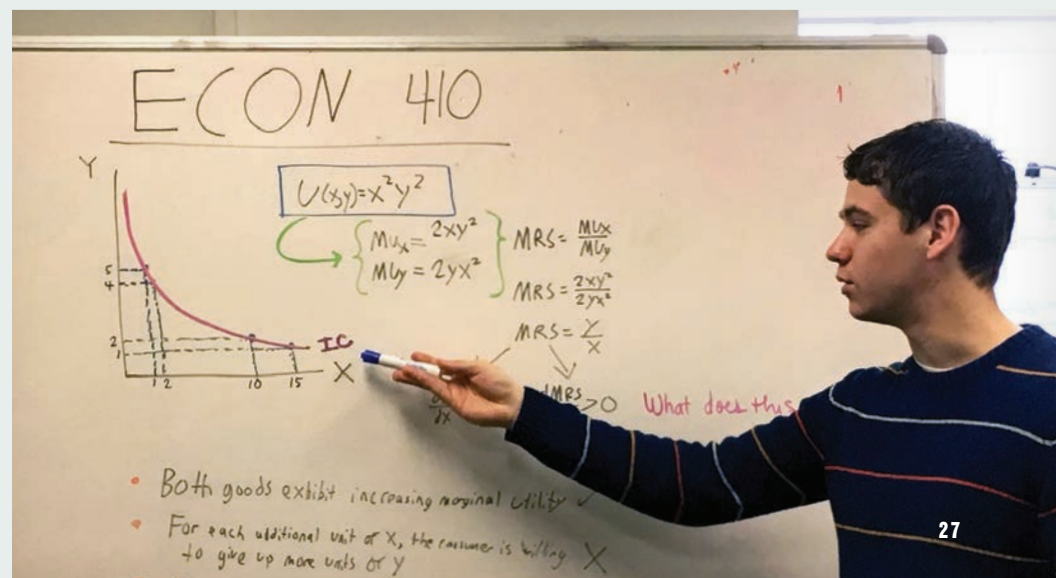 ECON 410
Y
U(x,y)=x²y²
MUx= 2xy²
MUy = 2yx²
MRS= MUx/MUy
MRS= 2xy²/2yx²
MRS= Y/X
5
4
2
1
IC
X
1 2 10 15
dx
dMRS >0
What does this
• Both goods exhibit increasing marginal utility ✓
• For each additional unit of X, the consumer is willing X
to give up more units of Y
27